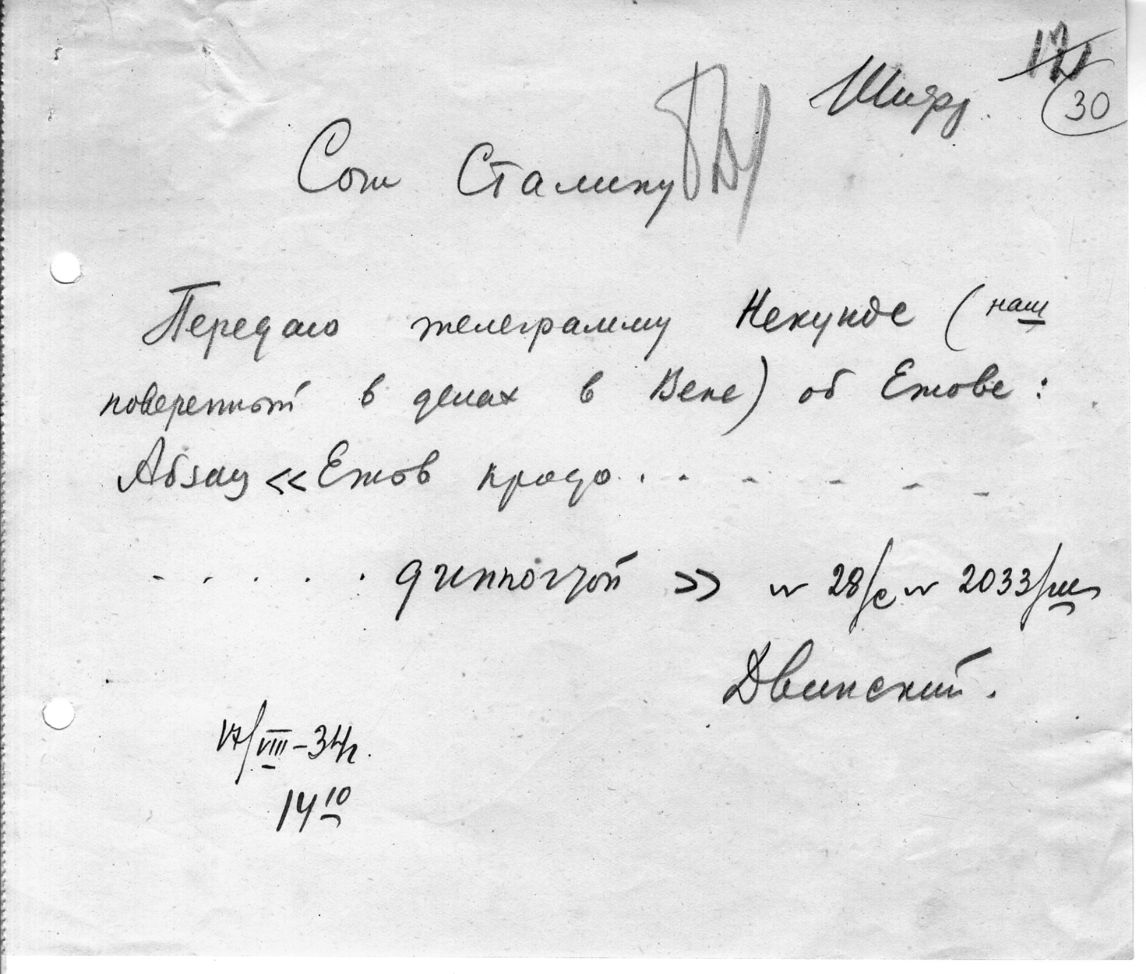 Шифр. 121
30
Сочи Сталину
Передаю телеграмму Некунде (наш
поверенный в делах в Вене) об Ежове:
Абзац «Ежов продо . . - - - -
. . . . . диппочтой» 28/с 2033/ш
Двинский.
17/VIII-34г.
14 10